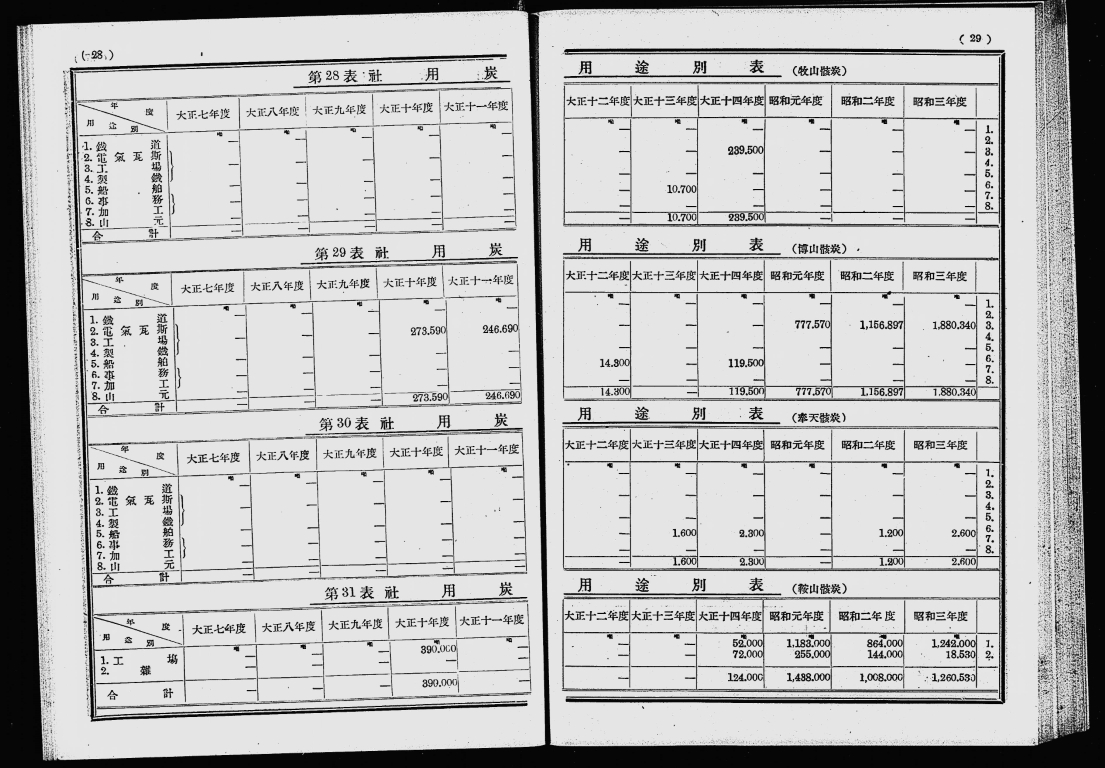 (28)
第28表 社用炭
年度 用途別 大正七年度 大正八年度 大正九年度 大正十年度 大正十一年度
噸 噸 噸 噸 噸
1. 鐵道 — — — — —
2. 電氣瓦斯
3. 工場 — — — — —
4. 製鐵
5. 船舶 — — — — —
6. 事務 — — — — —
7. 加工
8. 山元 — — — — —
合計 — — — — —
第29表 社用炭
年度 用途別 大正七年度 大正八年度 大正九年度 大正十年度 大正十一年度
噸 噸 噸 噸 噸
1. 鐵道 — — — — —
2. 電氣瓦斯
3. 工場 — — — 273.590 246.690
4. 製鐵
5. 船舶 — — — — —
6. 事務 — — — — —
7. 加工
8. 山元 — — — — —
合計 — — — 273.590 246.690
第30表 社用炭
年度 用途別 大正七年度 大正八年度 大正九年度 大正十年度 大正十一年度
噸 噸 噸 噸 噸
1. 鐵道 — — — — —
2. 電氣瓦斯
3. 工場 — — — — —
4. 製鐵
5. 船舶 — — — — —
6. 事務 — — — — —
7. 加工
8. 山元 — — — — —
合計 — — — — —
第31表 社用炭
年度 用途別 大正七年度 大正八年度 大正九年度 大正十年度 大正十一年度
噸 噸 噸 噸 噸
1. 工場 — — — 390.000 —
2. 雜 — — — — —
合計 — — — 390.000 —
(29)
用途別表 (牧山骸炭)
大正十二年度 大正十三年度 大正十四年度 昭和元年度 昭和二年度 昭和三年度
噸 噸 噸 噸 噸 噸
— — — — — — 1.
2.
— — 239.500 — — — 3.
4.
— — — — — — 5.
— 10.700 — — — — 6.
7.
— — — — — — 8.
— 10.700 239.500 — — —
用途別表 (博山骸炭)
大正十二年度 大正十三年度 大正十四年度 昭和元年度 昭和二年度 昭和三年度
噸 噸 噸 噸 噸 噸
— — — — — — 1.
2.
— — — 777.570 1,156.897 1,880.340 3.
4.
— — — — — — 5.
14.300 — 119.500 — — — 6.
7.
— — — — — — 8.
14.300 — 119.500 777.570 1,156.897 1,880.340
用途別表 (奉天骸炭)
大正十二年度 大正十三年度 大正十四年度 昭和元年度 昭和二年度 昭和三年度
噸 噸 噸 噸 噸 噸
— — — — — — 1.
2.
— — — — — — 3.
4.
— — — — — — 5.
— 1.600 2.300 — 1.200 2.600 6.
7.
— — — — — — 8.
— 1.600 2.300 — 1.200 2.600
用途別表 (鞍山骸炭)
大正十二年度 大正十三年度 大正十四年度 昭和元年度 昭和二年度 昭和三年度
噸 噸 噸 噸 噸 噸
— — 52.000 1,183.000 864.000 1,242.000 1.
— — 72.000 255.000 144.000 18.530 2.
— — 124.000 1,438.000 1,008.000 1,260.530